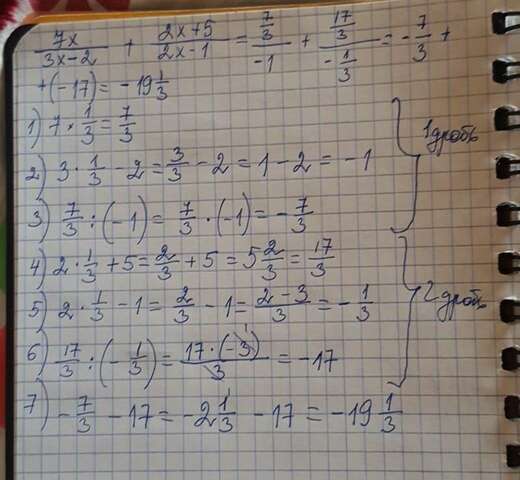 7x/(3x-2) + (2x+5)/(2x-1) = (7/3)/(-1) + (17/3)/(-1/3) = -7/3 +
+(-17) = -19 1/3
1) 7 · 1/3 = 7/3
2) 3 · 1/3 - 2 = 3/3 - 2 = 1 - 2 = -1
3) 7/3 : (-1) = 7/3 · (-1) = -7/3
1 дробь
4) 2 · 1/3 + 5 = 2/3 + 5 = 5 2/3 = 17/3
5) 2 · 1/3 - 1 = 2/3 - 1 = (2-3)/3 = -1/3
6) 17/3 : (-1/3) = 17 · (-3)/3 = -17
2 дробь
7) -7/3 - 17 = -2 1/3 - 17 = -19 1/3